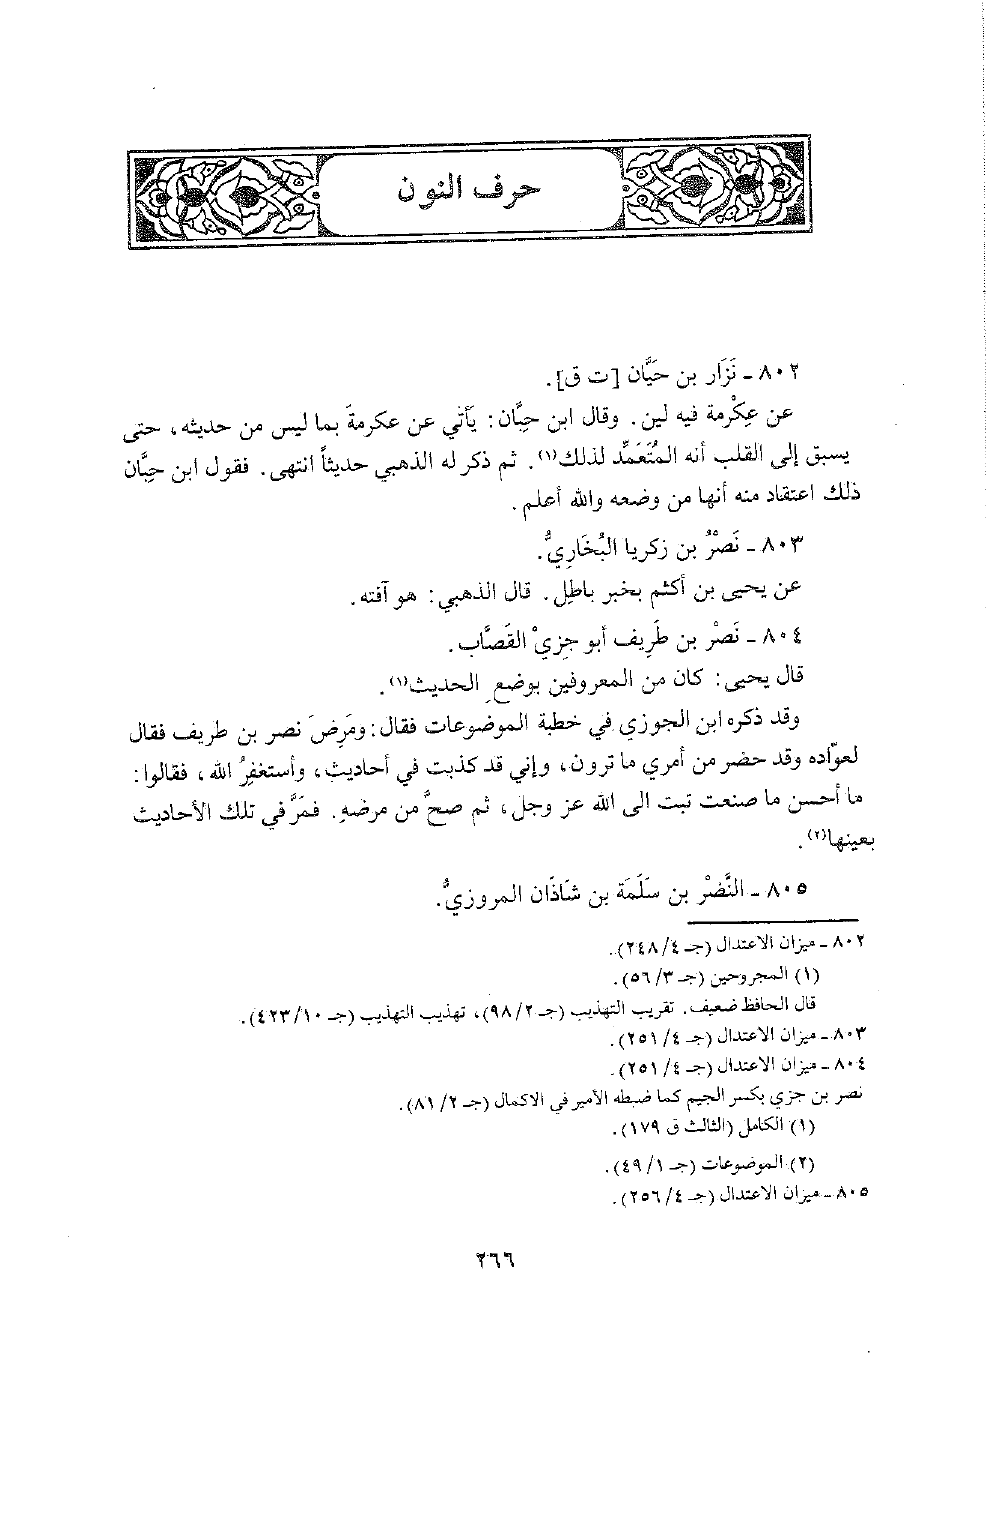 حرف النون
٨٠٢ ـ نَزَار بن حَيَّان [ت ق].
عن عِكْرمة فيه لين. وقال ابن حِبَّان: يَأتي عن عكرمةَ بما ليس من حديثه، حتى
يسبق إلى القلب أنه المُتَعَمِّد لذلك(١). ثم ذكر له الذهبي حديثاً انتهى. فقول ابن حِبَّان
ذلك اعتقاد منه أنها من وضعه والله أعلم.
٨٠٣ ـ نَصْرُ بن زكريا البُخَارِيُّ.
عن يحيى بن أكثم بخبر باطِل. قال الذهبي: هو آفته.
٨٠٤ ـ نَصْرُ بن طَرِيف أبو جِزيْ القَصَّاب.
قال يحيى: كان من المعروفين بوضعِ الحديث(١).
وقد ذكره ابن الجوزي في خطبة الموضوعات فقال: ومَرِضَ نصر بن طريف فقال
لعوّاده وقد حضر من أمري ما ترون، وإني قد كذبت في أحاديث، وأستغفِرُ الله، فقالوا:
ما أحسن ما صنعت تبت الى الله عز وجل، ثم صحَّ من مرضهِ. فمَرَّ في تلك الأحاديث
بعينها(٢).
٨٠٥ ـ النَّضْر بن سَلَمَة بن شَاذَان المروزيُّ.
٨٠٢ ـ ميزان الاعتدال (جـ ٢٤٨/٤).
(١) المجروحين (جـ ٥٦/٣).
قال الحافظ ضعيف. تقريب التهذيب (جـ ٩٨/٢)، تهذيب التهذيب (جـ ٤٢٣/١٠).
٨٠٣ ـ ميزان الاعتدال (جـ ٢٥١/٤).
٨٠٤ ـ ميزان الاعتدال (جـ ٢٥١/٤).
نصر بن جزي بكسر الجيم كما ضبطه الأمير في الاكمال (جـ ٨١/٢).
(١) الكامل (الثالث ق ١٧٩).
(٢) الموضوعات (جـ ٤٩/١).
٨٠٥ ـ ميزان الاعتدال (جـ ٢٥٦/٤).
٢٦٦